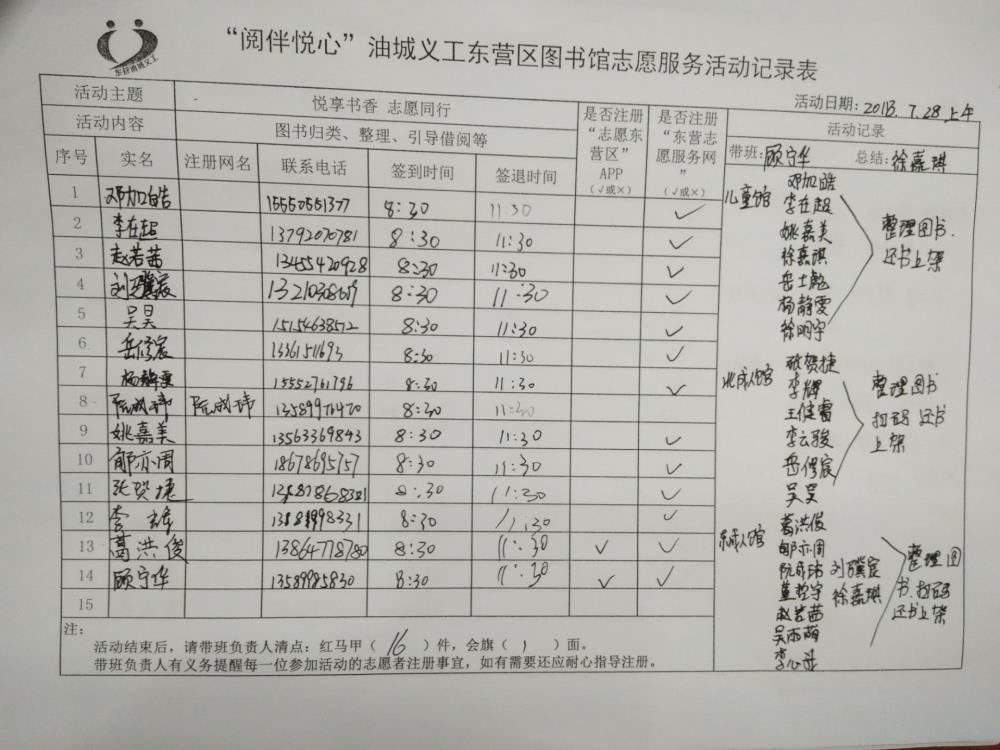 东营油城义工
“阅伴悦心”油城义工东营区图书馆志愿服务活动记录表
活动日期：2018.7.28上午
活动主题 悦享书香 志愿同行
活动内容 图书归类、整理、引导借阅等
是否注册“志愿东营区”APP（√或×）
是否注册“东营志愿服务网”（√或×）
活动记录
序号 实名 注册网名 联系电话 签到时间 签退时间
带班：顾宁华 总结：徐嘉琪
1 邓加皓 15550551377 8:30 11:30 √
2 李在超 13792070781 8:30 11:30 √
3 赵若茜 13455420928 8:30 11:30 √
4 刘骥宸 8:30 11:30 √
5 吴昊 15154638572 8:30 11:30 √
6 岳修宸 13361511693 8:30 11:30 √
7 杨静雯 15552761796 8:30 11:30 √
8 阮成玮 阮成玮 8:30 11:30
9 姚嘉美 13563369843 8:30 11:30 √
10 郇亦周 18678695757 8:30 11:30 √
11 张贺捷 8:30 11:30 √
12 李辉 8:30 11:30 √
13 葛洪俊 13864778780 8:30 11:30 √ √
14 顾宁华 13589985830 8:30 11:30 √ √
15
儿童馆 邓加皓
李在超
姚嘉美
徐嘉琪
杨静雯
徐明宇
整理图书.
还书上架
北成人馆 张贺捷
李辉
王健睿
李云骏
岳修宸
吴昊
整理图书
扫码 还书
上架
东成人馆 葛洪俊
郇亦周
阮成玮 刘骥宸
董哲宇 徐嘉琪
赵若茜
吴雨萌
整理图
书.扫码
还书上架
注：
活动结束后，请带班负责人清点：红马甲（16）件，会旗（1）面。
带班负责人有义务提醒每一位参加活动的志愿者注册事宜，如有需要还应耐心指导注册。